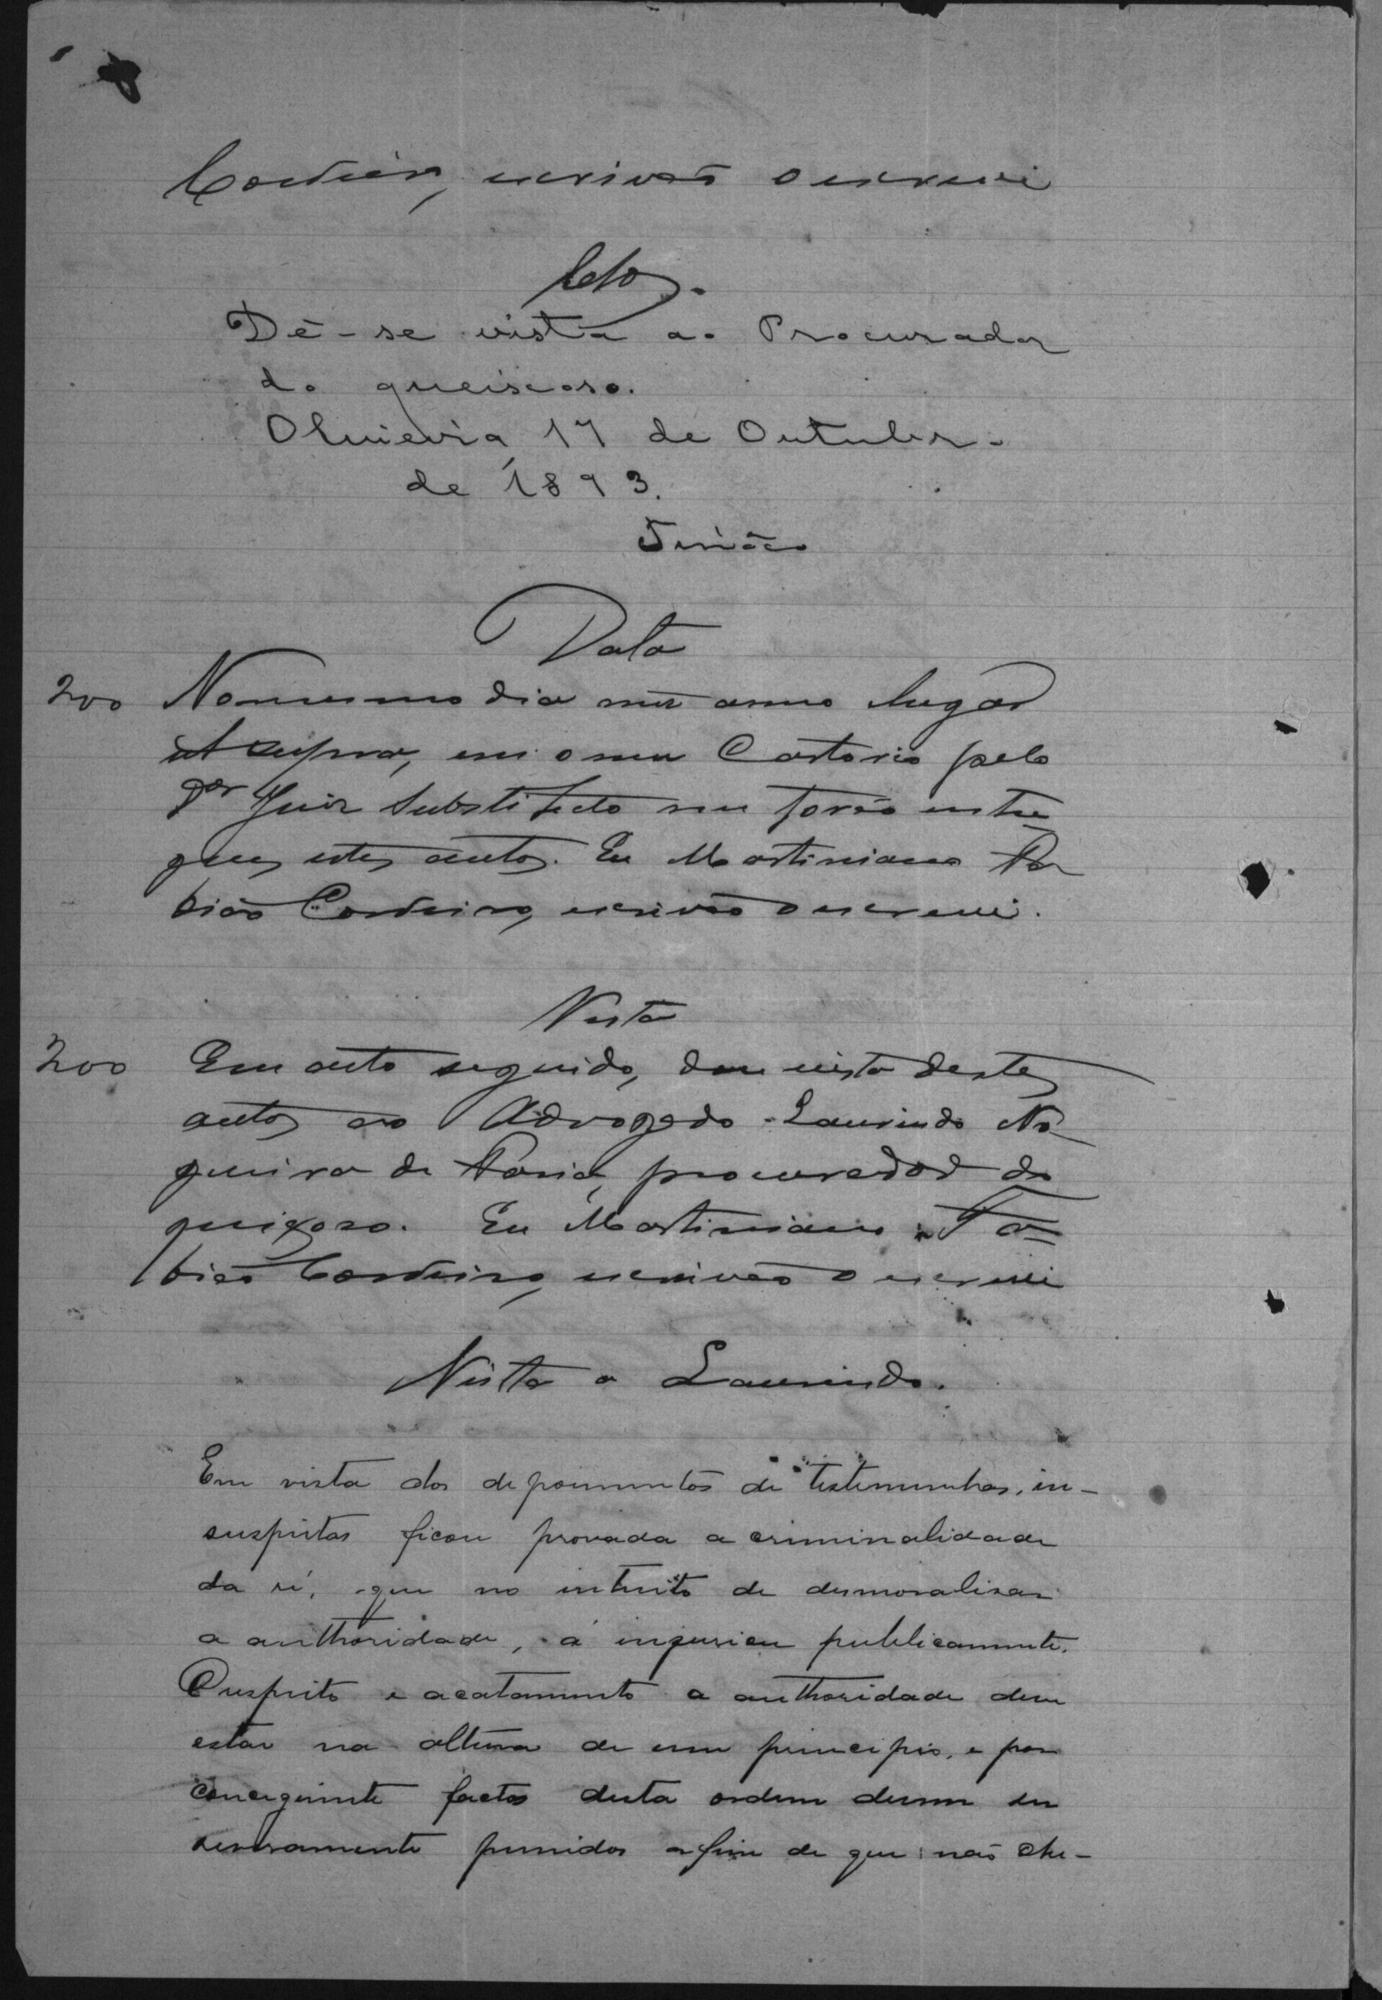 Cordeiro, escrivão o escrevi
Clos.
Dê-se vista ao Procurador
do queixoso.
17 de Outubro
de 1893.
Data
200 No mesmo dia mez anno lugar
supra, em o meu Cartorio pelo
Juiz Substituto me forão entre
gues estes autos. Eu Martiniano Fa
bião Cordeiro, escrivão o escrevi.
Vista
200 Em acto seguido, dou vista destes
autos ao Advogado Laurindo No
gueira de Faria, procurador do
queixoso. Eu Martiniano Fa=
bião Cordeiro, escrivão o escrevi
Vista a Laurindo.
Em vista dos depoimentos de testemunhas, in-
suspeitas ficou provada a criminalidade
da ré, que no intuito de desmoralisar
a authoridade, á injuriou publicamente.
O respeito e acatamento a authoridade deve
estar na altura de um principio, e por
conceguinte factos desta ordem devem ser
severamente punidos afim de que não che-